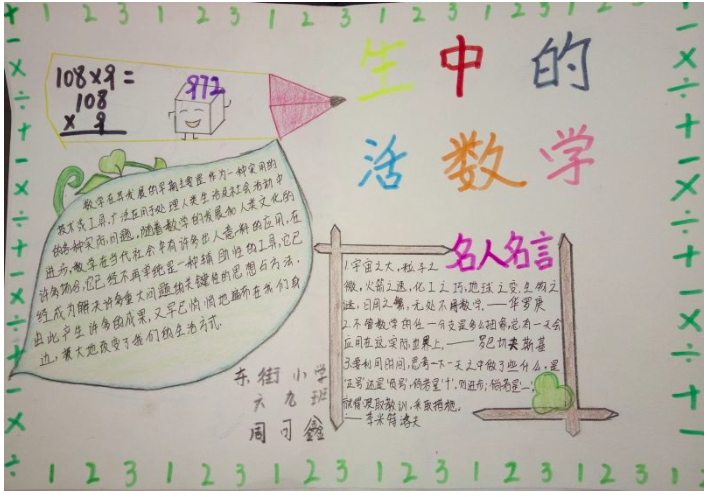 1 2 3 1 2 3 1 2 3 1 2 3 1 2 3
108×9=
108
× 9
972
生中的
活数学
数学在其发展的早期主要是作为一种实用的
技术或工具,广泛应用于处理人类生活及社会活动中
的各种实际问题。随着数学的发展和人类文化的
进步,数学在当代社会中有许多出人意料的应用,在
许多场合,它已经不再单纯是一种辅助性的工具,它已
经成为解决许多重大问题的关键性的思想与方法,
由此产生许多的成果,又早已悄悄地遍布在我们身
边,极大地改变了我们的生活方式.
名人名言
1.宇宙之大,粒子之
微,火箭之速,化工之巧,地球之变,生物之
谜,日用之繁,无处不用数学.——华罗庚
2.不管数学的任一分支是多么抽象,总有一天会
应用在这实际世界上.——罗巴切夫斯基
3.要利用时间,思考一下一天之中做了些什么,是
'正号'还是'负号',倘若是'+',则进步;倘若是'—',
就得吸取教训,采取措施.
——季米特洛夫
东街小学
六九班
周 鑫
1 2 3 1 2 3 1 2 3 1 2 3 1 2 3 1 2 3